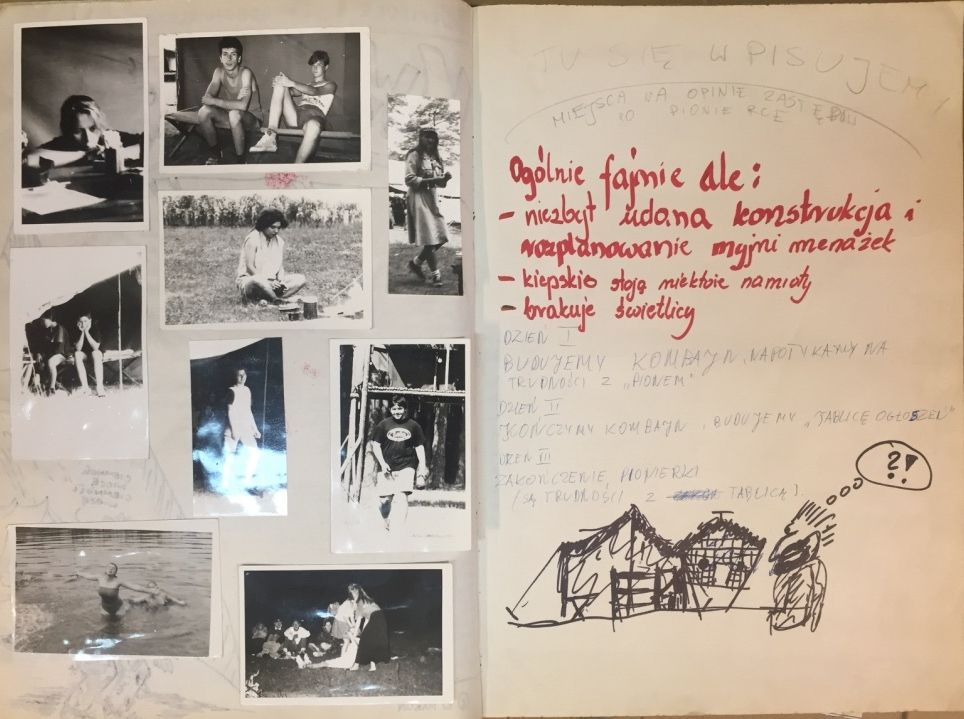 TU SIĘ WPISUJEMY
MIEJSCA NA OPINIE ZASTĘPU
O PIONIERCE
Ogólnie fajnie ale:
- niezbyt udana konstrukcja i
rozplanowanie myjni menażek
- kiepsko stoją niektóre namioty
- brakuje świetlicy
DZIEŃ I
BUDUJEMY KOMBAJN, NAPOTYKAMY NA
TRUDNOŚCI Z „PIONEM"
DZIEŃ II
KOŃCZYMY KOMBAJN, BUDUJEMY „TABLICĘ OGŁOSZEŃ"
DZIEŃ III
ZAKOŃCZENIE PIONIERKI
(SĄ TRUDNOŚCI Z TABLICĄ).
?!